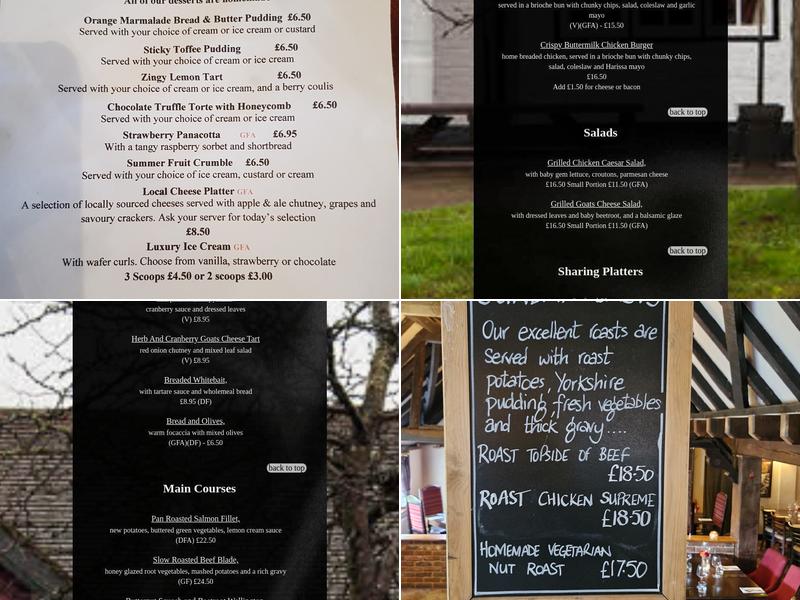 All of our desserts are homemade
Orange Marmalade Bread & Butter Pudding £6.50
Served with your choice of cream or ice cream or custard
Sticky Toffee Pudding £6.50
Served with your choice of cream or ice cream
Zingy Lemon Tart £6.50
Served with your choice of cream or ice cream, and a berry coulis
Chocolate Truffle Torte with Honeycomb £6.50
Served with your choice of cream or ice cream
Strawberry Panacotta GFA £6.95
With a tangy raspberry sorbet and shortbread
Summer Fruit Crumble £6.50
Served with your choice of ice cream, custard or cream
Local Cheese Platter GFA
A selection of locally sourced cheeses served with apple & ale chutney, grapes and
savoury crackers. Ask your server for today's selection
£8.50
Luxury Ice Cream GFA
With wafer curls. Choose from vanilla, strawberry or chocolate
3 Scoops £4.50 or 2 scoops £3.00
served in a brioche bun with chunky chips, salad, coleslaw and garlic
mayo
(V)(GFA) - £15.50
Crispy Buttermilk Chicken Burger
home breaded chicken, served in a brioche bun with chunky chips,
salad, coleslaw and Harissa mayo
£16.50
Add £1.50 for cheese or bacon
back to top
Salads
Grilled Chicken Caesar Salad,
with baby gem lettuce, croutons, parmesan cheese
£16.50 Small Portion £11.50 (GFA)
Grilled Goats Cheese Salad,
with dressed leaves and baby beetroot, and a balsamic glaze
£16.50 Small Portion £11.50 (GFA)
back to top
Sharing Platters
cranberry sauce and dressed leaves
(V) £8.95
Herb And Cranberry Goats Cheese Tart
red onion chutney and mixed leaf salad
(V) £8.95
Breaded Whitebait,
with tartare sauce and wholemeal bread
£8.95 (DF)
Bread and Olives,
warm focaccia with mixed olives
(GFA)(DF) - £6.50
back to top
Main Courses
Pan Roasted Salmon Fillet,
new potatoes, buttered green vegetables, lemon cream sauce
(DFA) £22.50
Slow Roasted Beef Blade,
honey glazed root vegetables, mashed potatoes and a rich gravy
(GF) £24.50
Our excellent roasts are
Served with roast
potatoes, Yorkshire
pudding, fresh vegetables
and thick gravy....
ROAST TOPSIDE OF BEEF
£18.50
ROAST CHICKEN SUPREME
£18.50
HOMEMADE VEGETARIAN
NUT ROAST £17.50